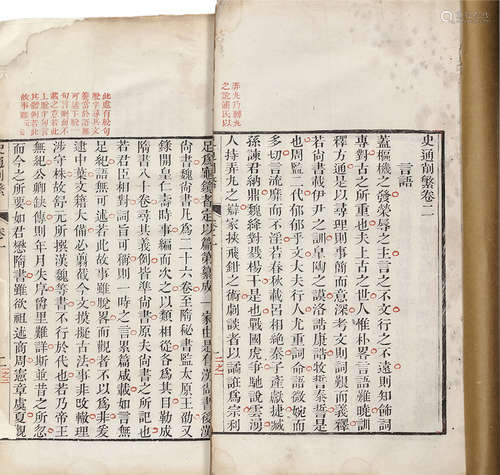 史通削繁卷二
言語
蓋樞機之發榮辱之主言之不文行之不遠則知飾詞
專對古之所重也夫上古之世人惟朴畧言語難曉訓
釋方通是以尋理則事簡而意深考文則詞艱而義釋
若尚書載伊尹之訓皋陶之謨洛誥康誥牧誓泰誓是
也周監二代郁郁乎文大夫行人尤重詞命語微婉而
多切言流靡而不淫若春秋載呂相絶秦子產獻捷臧
孫諫君納鼎魏絳對戮楊干是也戰國虎爭馳說雲湧
人持弄丸之辯家挾飛鉗之術劇談者以譎誑為宗利
弄丸乃轉丸
之訛浦氏以
足為龜鏡者定以篇第纂成一家由是有漢尚書後漢
尚書魏尚書凡為二十六卷至隋秘書監太原王劭又
錄開皇仁壽時事編而次之以類相從各為其目勒成
隋書八十卷尋其義例皆準尚書原夫尚書之所記也
若君臣相對詞旨可稱則一時之言累篇咸載如言無
足紀語無可述若此故事雖脫畧而觀者不以為非爰
逮中葉文籍大備必剪截今文摸擬古法事非改轍理
涉守株故舒元所撰漢魏等書不行於代也若乃帝王
無紀公卿缺傳則年月失序爵里難詳斯並昔之所忽
而今之所要如君懋隋書雖欲祖述商周憲章虞夏觀
此處有脫句
脫字尋其文
義當於語無
可述下脫一
句言而不
載之意若此
上脫字言
其體例若此
故事雖
史通削繁 卷一